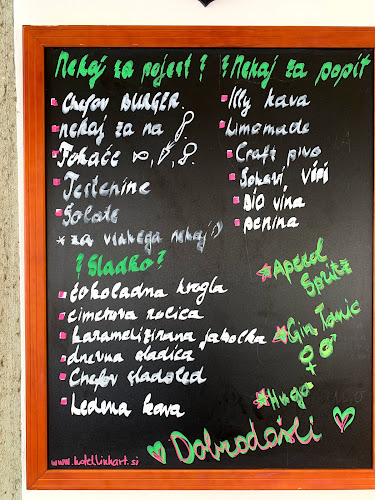 Nekaj za pojest?
Chefov BURGER
nekaj za na
Fokače
Testenine
Solate
* za vsakega nekaj :)
? Sladko?
čokoladna krogla
cimetova rolica
karamelizirana jabolka
dnevna sladica
Chefov sladoled
Ledena kava
www.hotellinhart.si
? Nekaj za popit
Illy kava
Limonade
Craft pivo
Sokovi,
BIO vina
penina
Aperol
Spritz
Gin Tonic
Hugo
Dobrodošli